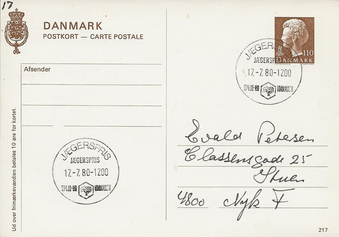 17
DANMARK
POSTKORT — CARTE POSTALE
110
DANMARK
JÆGERSPRIS
JÆGERSPRIS
17.-7.80-1200
SPEJD-80
Afsender
JÆGERSPRIS
JÆGERSPRIS
17.-7.80-1200
SPEJD-80
Ewald Petersen
Classensgade 25
Stuen
4800 Nyk F
Ud over frimærkeværdien betales 10 øre for kortet.
217